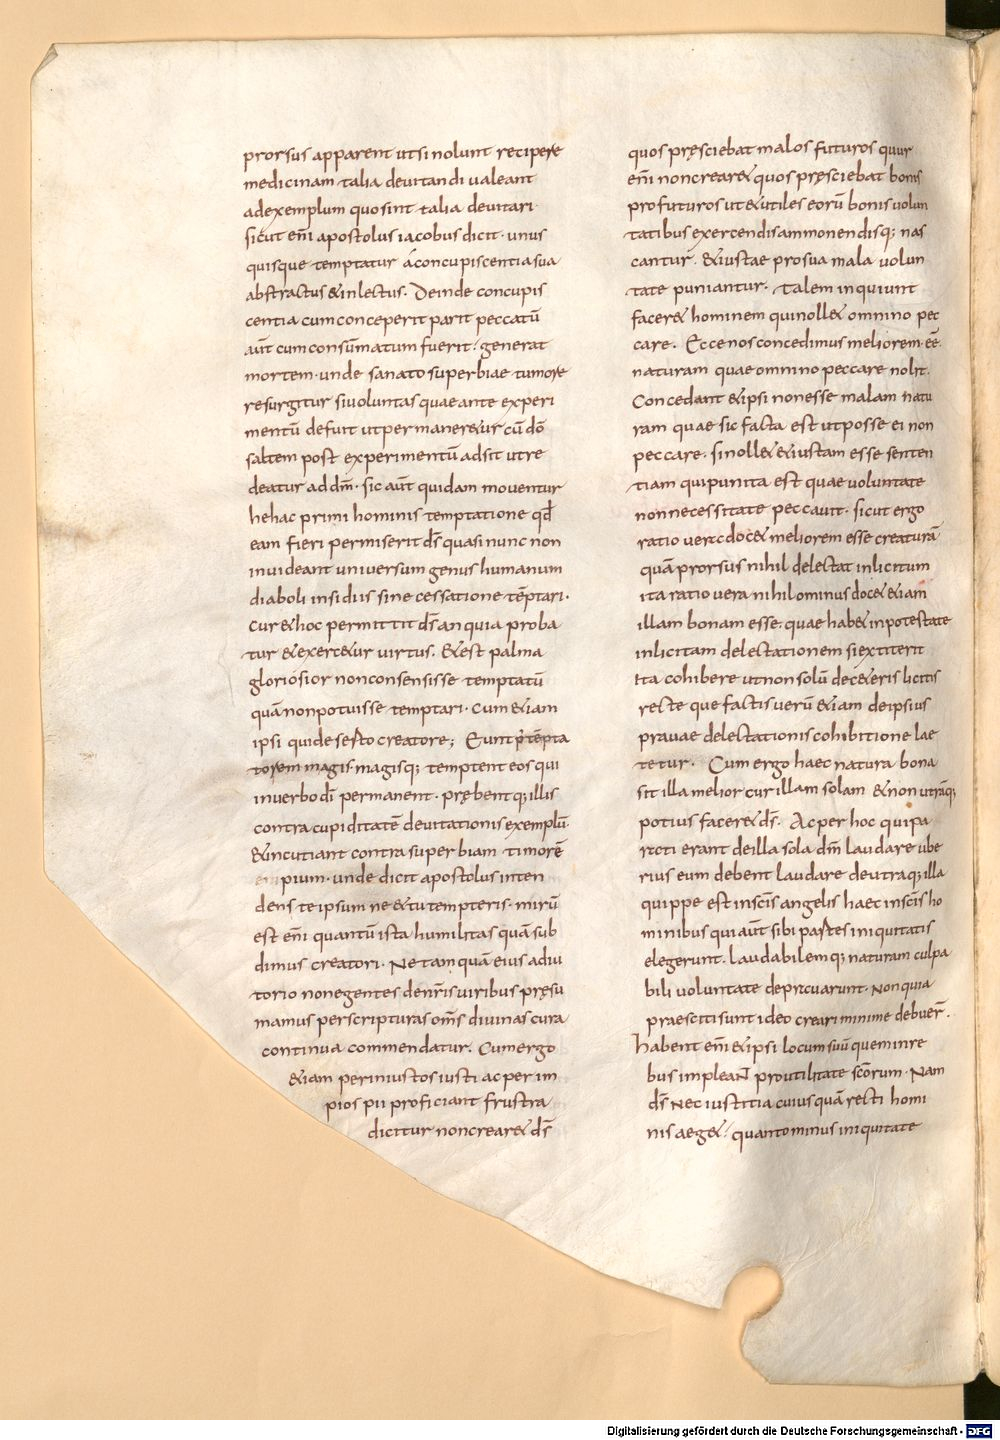 prorsus apparent ut si nolunt recipere
medicinam talia deuitandi ualeant
ad exemplum quo sint talia deuitari·
sicut eni apostolus iacobus dicit· unus
quisque temptatur a concupiscentia sua
abstractus & inlectus. Deinde concupis
centia cum conceperit parit peccatū
aūt cum consūmatum fuerit· generat
mortem· unde sanato superbiae tumore
resurgitur si uoluntas quae ante experi
mentū defuit ut permaner&ur cū dō
saltem post experimentū adsit ut re
deatur ad dm̄· sic aūt quidam mouentur
he hac primi hominis temptatione qd̄
eam fieri permiserit ds̄ quasi nunc non
inuideant uniuersum genus humanum
diaboli insidiis sine cessatione tēptari·
cur & hoc permittit ds̄ an quia proba
tur & exerc&ur uirtus. & est palma
gloriosior non consensisse temptatū
quā non potuisse temptari· cum &iam
ipsi qui deserto creatore; Eunt tēpta
torem magis magisq; temptent eos qui
in uerbo dī permanent· prębentq; illis
contra cupiditatē deuitationis exemplū·
& incutiant contra superbiam timorē
pium· unde dicit apostolus inten
dens te ipsum ne & tu tempteris· mirū
est eni quantū ista humilitas quā sub
dimus creatori· Ne tamquā eius adiu
torio non egentes de nr̄is uiribus pręsu
mamus per scripturas om̄s diuinas cura
continua commendatur. Cum ergo
&iam per iniustos iusti ac per im
pios pii proficiant frustra
dicitur non crear& ds̄
quos pręsciebat malos futuros quur
eni non crear& quos pręsciebat bonis
profuturos ut & utiles eorū bonis uolun
tatibus exercendis ammonendisq; nas
cantur. & iustae pro sua mala uolun
tate puniantur· Talem inquiunt
facer& hominem qui noll& omnino pec
care. Ecce nos concedimus meliorem eē
naturam quae omnino peccare nolit.
Concedant & ipsi non esse malam natu
ram quae sic facta est ut posse ei non
peccare· si noll& & iustam esse senten
tiam qui punita est quae uoluntate
non necessitate peccauit· sicut ergo
ratio uera doc& meliorem esse creaturā
quā prorsus nihil delectat inlicitum
ita ratio uera nihilominus doc& &iam
illam bonam esse· quae hab& in potestate
inlicitam delectationem si extiterit
ita cohibere ut non solū de c&eris licitis
recte que factis uerū &iam de ipsius
prauae delectationis cohibitione lae
tetur. Cum ergo haec natura bona
sit illa melior cur illam solam & non utrāq;
potius facer& ds̄. Ac per hoc qui pa
rati erant de illa sola dm̄ laudare ube
rius eum debent laudare de utraq; illa
quippe est in scīs angelis haec in scīs ho
minibus qui aūt sibi partes iniquitatis
elegerunt. laudabilemq; naturam culpa
bili uoluntate deprauarunt. non quia
praesciti sunt ideo creari minime debuer̄.
habent eni & ipsi locum suū quem in re
bus impleaNt pro utilitate sc̄orum· Nam
ds̄ nec iustitia cuiusquā recti homi
nis aeg&· quanto minus iniquitate
Digitalisierung gefördert durch die Deutsche Forschungsgemeinschaft - DFG